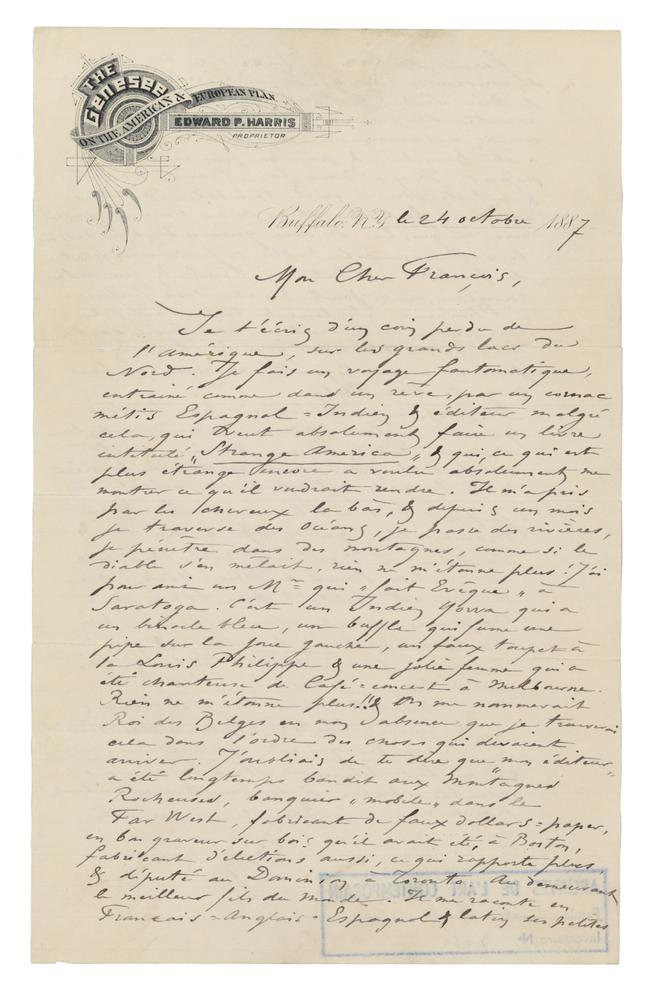 THE
GENESEE
ON THE AMERICAN & EUROPEAN PLAN.
EDWARD P. HARRIS
PROPRIETOR
Buffalo, N.Y. le 24 octobre 1887
Mon Cher François,
Je t'écris d'un coin perdu de
l'Amérique, sur les grands lacs du
Nord. Je fais un voyage fantomatique,
entrainé comme dans un rêve, par un cornac
métis Espagnol = Indien & éditeur malgré
cela, qui veut absolument faire un livre
intitulé „Strange America" & qui, ce qui est
plus étrange encore a voulu absolument me
montrer ce qu'il voudrait rendre. Il m'a pris
par les cheveux la bàs, & depuis un mois
je traverse des Océans, je passe des rivières,
je pénètre dans des montagnes, comme si le
diable s'en mélait, rien ne m'étonne plus! J'ai
pour ami un Mr = qui „fait Evêque" à
Saratoga. C'est un Indien qui a
un binocle bleu, un buffle qui fume une
pipe sur la joue gauche, un faux toupet à
la Louis Philippe & une jolie femme qui a
été chanteuse de Café = concert à Melbourne.
Rien ne m'étonne plus!! & On me nommerait
Roi des Belges en mon absence que je trouverais
cela dans l'ordre des choses qui devaient
arriver. J'oubliais de te dire que mon „éditeur"
a été longtemps bandit aux Montagnes
Rocheuses, banquier „mobile" dans le
Far West, fabricant de faux dollars = paper,
en bon graveur sur bois qu'il avait été, à Boston,
fabricant d'élections aussi, ce qui rapporte plus
& député au Dominion à Toronto. Au demeurant
le meilleur fils du Monde. Il me raconte en
Français = Anglais = Espagnol & latin ses petites
DE L'ART CONTEMPORAIN
Inventaire N°